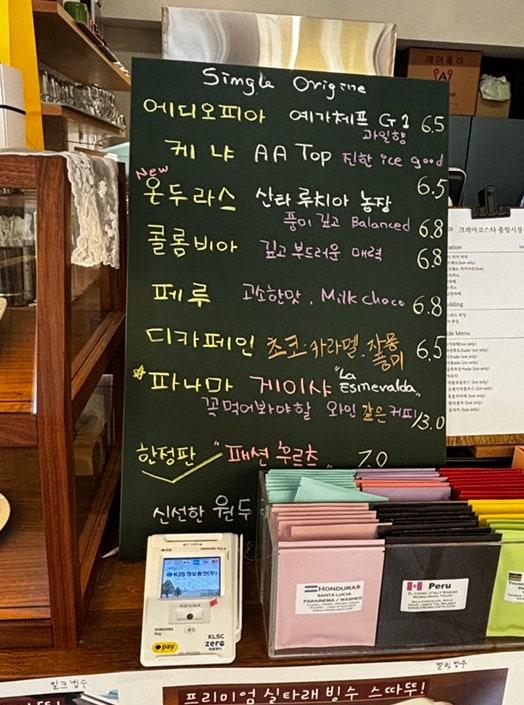 Single Origine
에디오피아 예가체프 G1 6.5
과일향
케냐 AA Top 진한 ice good
6.5
New
온두라스 산타루치아 농장
풍미 깊고 Balanced 6.8
콜롬비아 깊고 부드러운 매력 6.8
페루 고소한맛, Milk choco 6.8
디카페인 초코·카라멜·자몽 6.5
풍미
파나마 게이샤 "La Esmeralda"
꼭먹어봐야할 와인같은 커피 13.0
한정판 "패션후르츠" 7.0
신선한 원두
크레마코스타 중앙시장
HONDURAS
SANTA LUCIA
PARAINEMA / WASHED
Peru
KIS정보통신(주)
pay
KLSC
zero
밀크빙수
팥빙수
프리미엄 실타래 빙수 스따뚜!